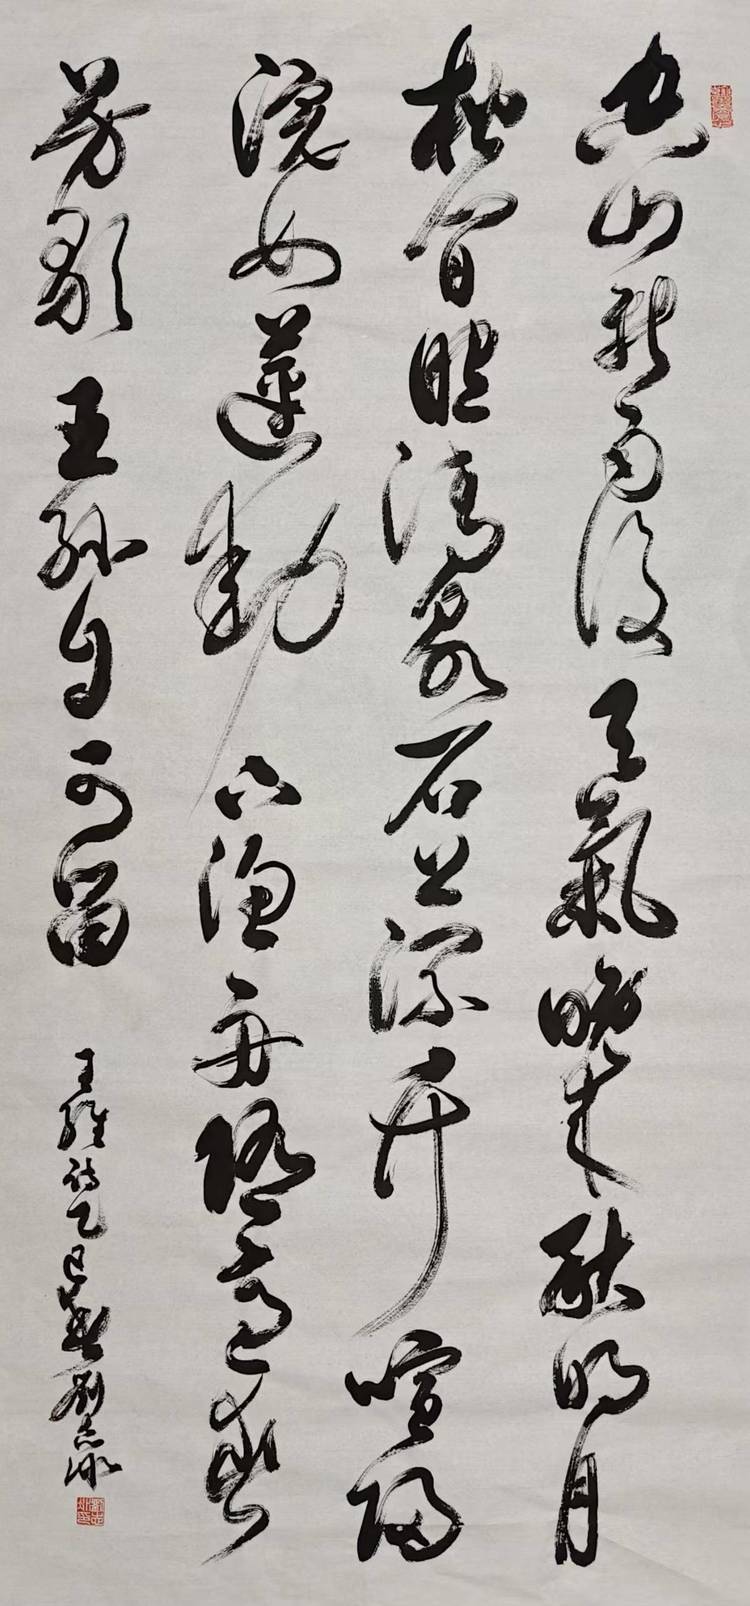 空山新雨後天氣晚来秋明月
松間照清泉石上流竹喧歸
浣女蓮動下漁舟隨意春
芳歇王孫自可留
王維詩乙巳劉志冰